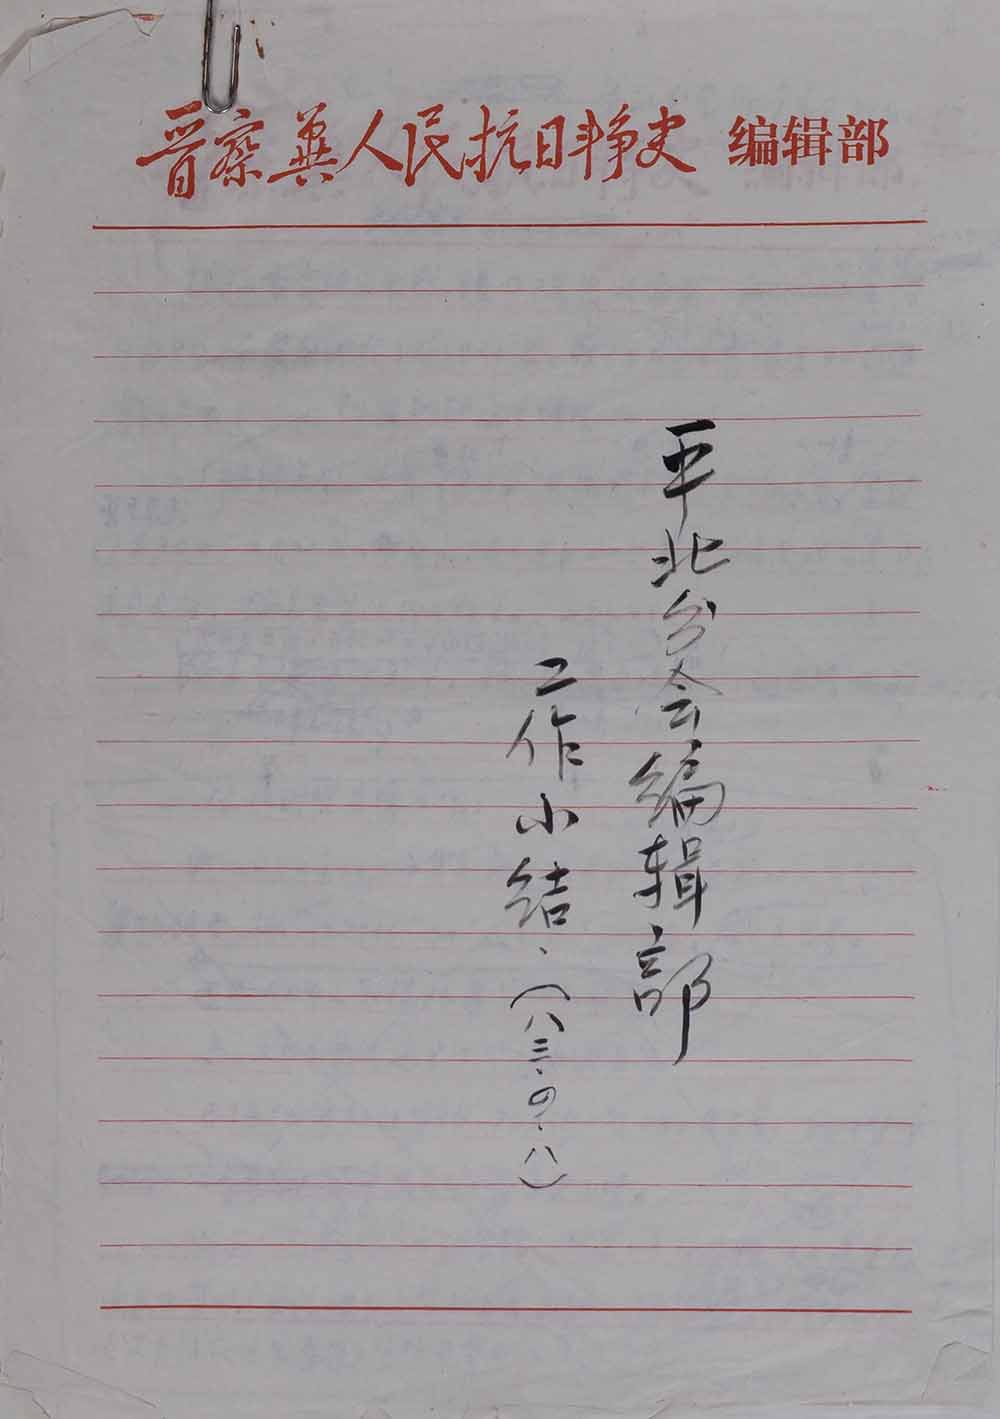 晋察冀人民抗日斗争史 编辑部
平北分会编辑部
工作小结、(八三、四、八)